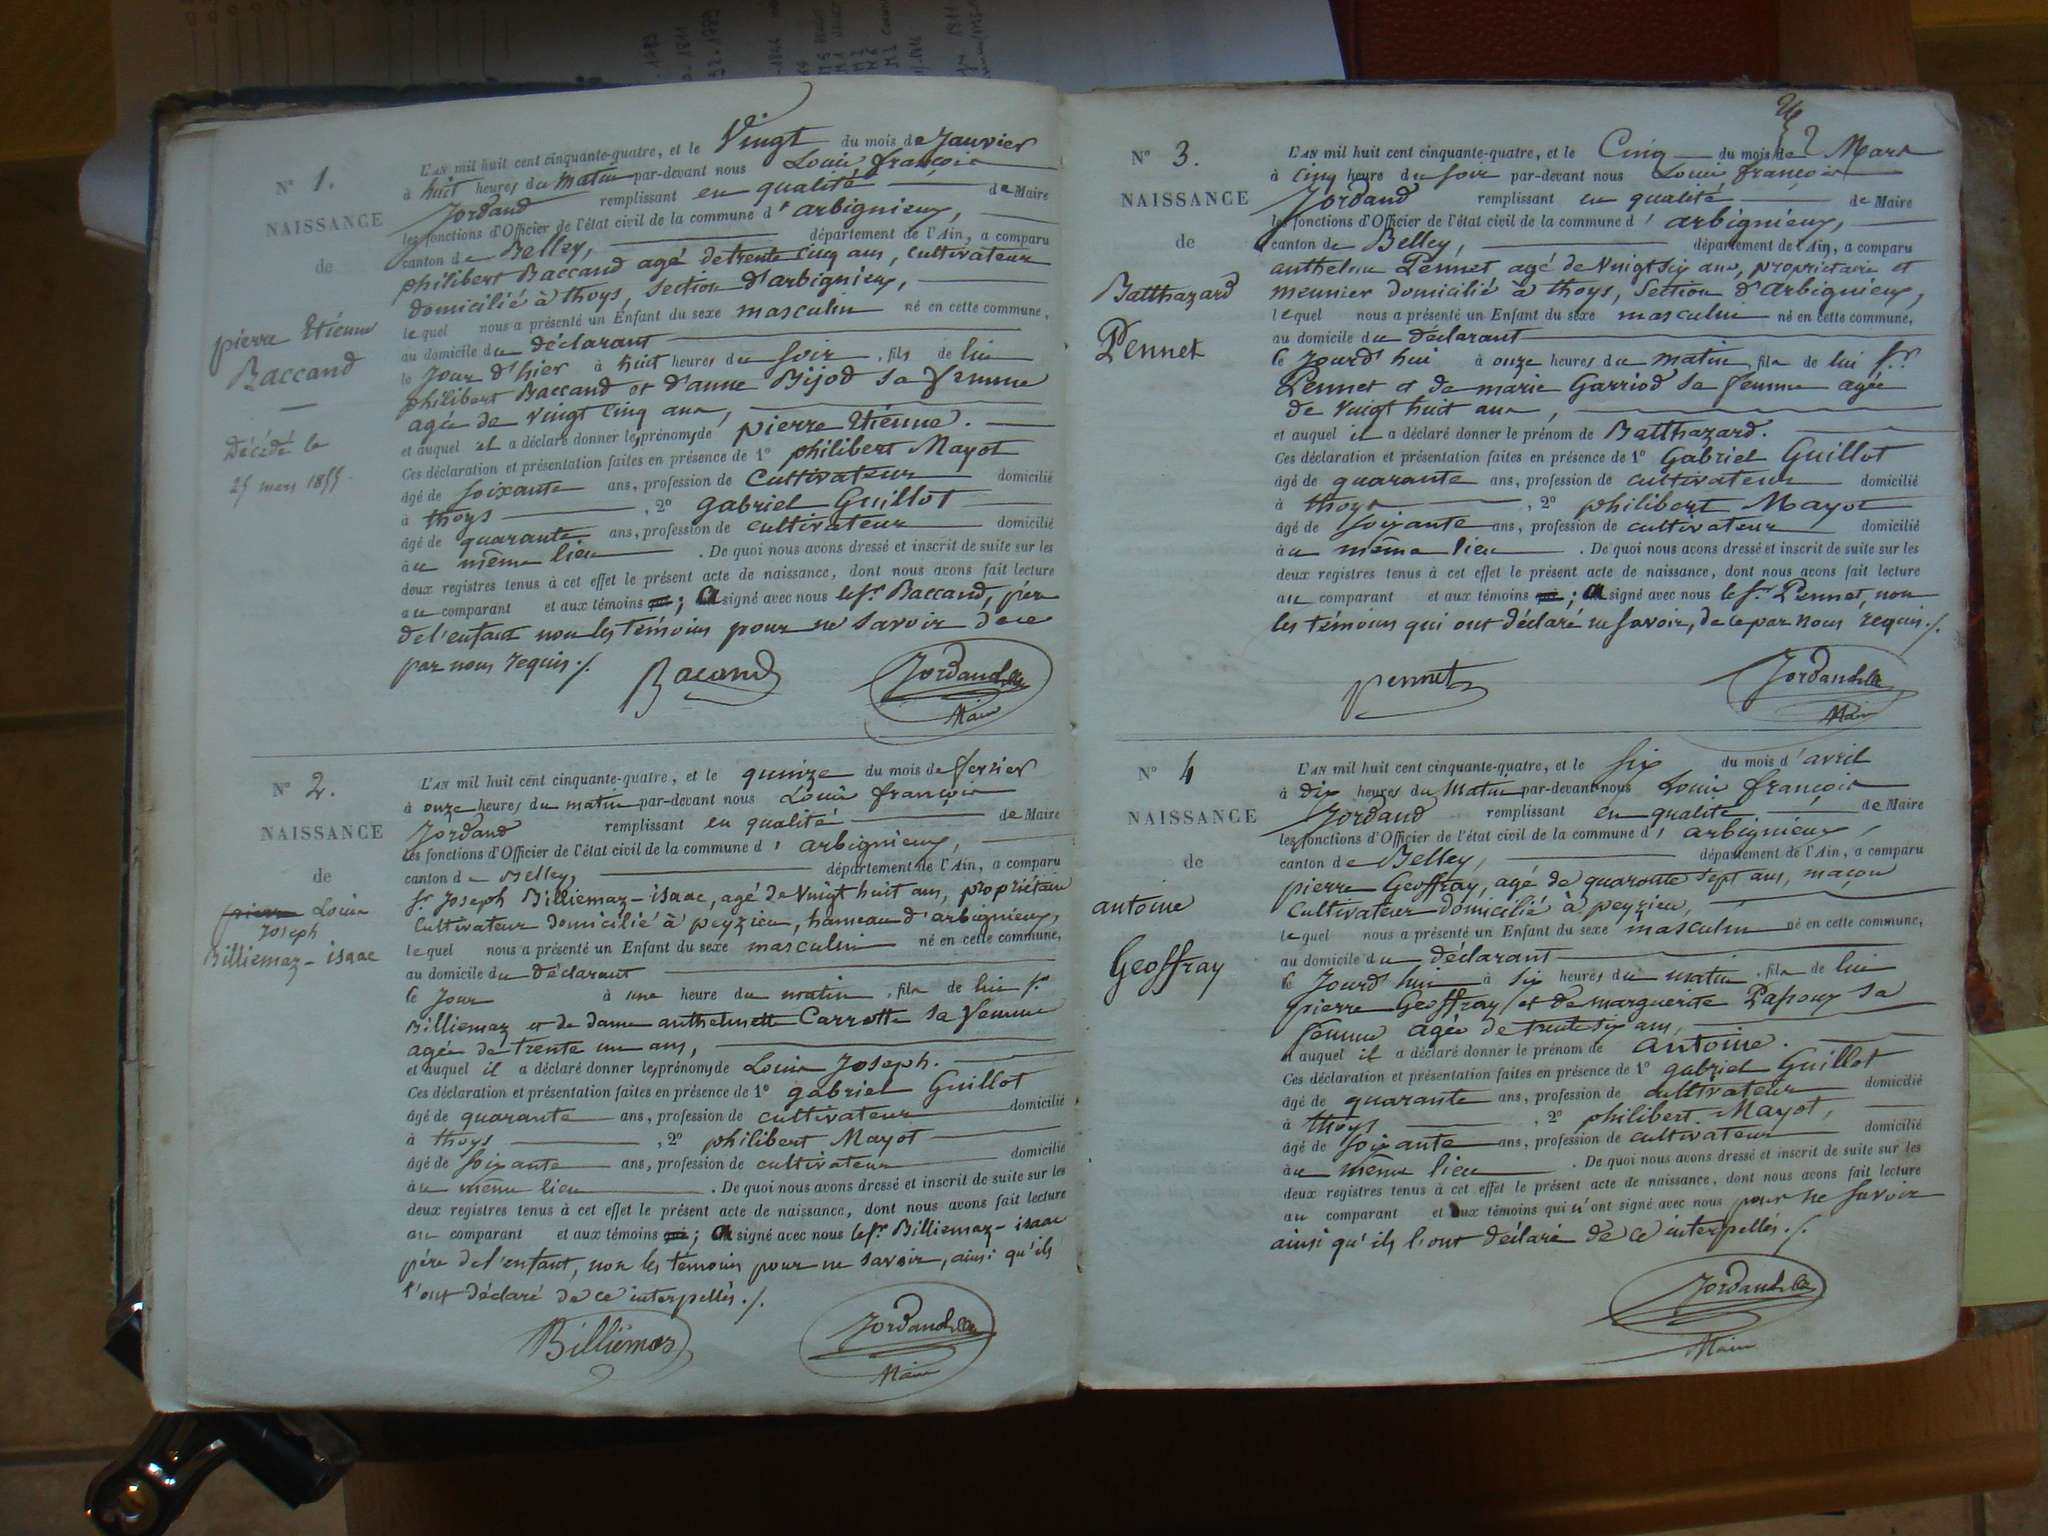 N° 1.
NAISSANCE
de
pierre Etienne
Baccand
Décédé le
25 mars 1855
L'AN mil huit cent cinquante-quatre, et le Vingt du mois de Janvier
à huit heures du matin par-devant nous Louis françois
Jordand remplissant en qualité de Maire
les fonctions d'Officier de l'état civil de la commune d'arbignieux,
canton de Belley, département de l'Ain, a comparu
philibert Baccand agé de trente cinq ans, cultivateur
domicilié à thoys, section d'arbignieux,
le quel nous a présenté un Enfant du sexe masculin né en cette commune,
au domicile du déclarant
le jour d'hier à huit heures du soir, fils de lui
philibert Baccand et d'anne Bijod sa femme
agée de vingt cinq ans,
et auquel il a déclaré donner les prénoms de pierre Etienne.
Ces déclaration et présentation faites en présence de 1° philibert Mayot
âgé de soixante ans, profession de cultivateur domicilié
à thoys, 2° gabriel Guillot
âgé de quarante ans, profession de cultivateur domicilié
au même lieu. De quoi nous avons dressé et inscrit de suite sur les
deux registres tenus à cet effet le présent acte de naissance, dont nous avons fait lecture
au comparant et aux témoins qui; a signé avec nous le sr. Baccand, père
de l'enfant non les témoins pour ne savoir de ce
par nous requis./.
Bacand Jordand
Maire
N° 2.
NAISSANCE
de
pierre Louis
Joseph
Billiemaz-isaac
L'AN mil huit cent cinquante-quatre, et le quinze du mois de fevrier
à onze heures du matin par-devant nous Louis françois
Jordand remplissant en qualité de Maire
les fonctions d'Officier de l'état civil de la commune d'arbignieux,
canton de Belley, département de l'Ain, a comparu
sr. Joseph Billiemaz-isaac, agé de Vingt huit ans, propriétaire
cultivateur domicilié à peyzieu, hameau d'arbignieux,
le quel nous a présenté un Enfant du sexe masculin né en cette commune,
au domicile du déclarant
le jour à une heure du matin, fils de lui sr.
Billiemaz et de dame anthelmette Carrotte sa femme
agée de trente un ans,
et auquel il a déclaré donner les prénoms de Louis Joseph.
Ces déclaration et présentation faites en présence de 1° gabriel Guillot
âgé de quarante ans, profession de cultivateur domicilié
à thoys, 2° philibert Mayot
âgé de soixante ans, profession de cultivateur domicilié
au même lieu. De quoi nous avons dressé et inscrit de suite sur les
deux registres tenus à cet effet le présent acte de naissance, dont nous avons fait lecture
au comparant et aux témoins qui; a signé avec nous le sr. Billiemaz-isaac
père de l'enfant, non les témoins pour ne savoir, ainsi qu'ils
l'ont déclaré de ce interpellés./.
Billiemaz Jordand
Maire
N° 3.
NAISSANCE
de
Balthazard
Pennet
L'AN mil huit cent cinquante-quatre, et le Cinq du mois de Mars
à cinq heure du soir par-devant nous Louis françois
Jordand remplissant en qualité de Maire
les fonctions d'Officier de l'état civil de la commune d'arbignieux,
canton de Belley, département de l'Ain, a comparu
anthelme Pennet agé de Vingt six ans, propriétaire et
meunier domicilié à thoys, section d'arbignieux,
le quel nous a présenté un Enfant du sexe masculin né en cette commune,
au domicile du déclarant
le jourd'hui à onze heures du matin, fils de lui sr.
Pennet et de marie Garriod sa femme agée
de vingt huit ans,
et auquel il a déclaré donner le prénom de Balthazard.
Ces déclaration et présentation faites en présence de 1° Gabriel Guillot
âgé de quarante ans, profession de cultivateur domicilié
à thoys, 2° philibert Mayot
âgé de soixante ans, profession de cultivateur domicilié
au même lieu. De quoi nous avons dressé et inscrit de suite sur les
deux registres tenus à cet effet le présent acte de naissance, dont nous avons fait lecture
au comparant et aux témoins qui; a signé avec nous le sr. Pennet, non
les témoins qui ont déclaré ne savoir, de ce par nous requis./.
pennet Jordand
Maire
N° 4
NAISSANCE
de
antoine
Geoffray
L'AN mil huit cent cinquante-quatre, et le six du mois d'avril
à dix heures du matin par-devant nous Louis françois
Jordand remplissant en qualité de Maire
les fonctions d'Officier de l'état civil de la commune d'arbignieux,
canton de Belley, département de l'Ain, a comparu
pierre Geoffray, agé de quarante sept ans, maçon
cultivateur domicilié à peyzieu,
le quel nous a présenté un Enfant du sexe masculin né en cette commune,
au domicile du déclarant
le jourd'hui à six heures du matin, fils de lui
pierre Geoffray et de marguerite Passoux sa
femme agée de trente six ans,
et auquel il a déclaré donner le prénom de antoine.
Ces déclaration et présentation faites en présence de 1° gabriel Guillot
âgé de quarante ans, profession de cultivateur domicilié
à thoys, 2° philibert Mayot,
âgé de soixante ans, profession de cultivateur domicilié
au même lieu. De quoi nous avons dressé et inscrit de suite sur les
deux registres tenus à cet effet le présent acte de naissance, dont nous avons fait lecture
au comparant et aux témoins qui n'ont signé avec nous pour ne savoir
ainsi qu'ils l'ont déclaré de ce interpellés./.
Jordand
Maire